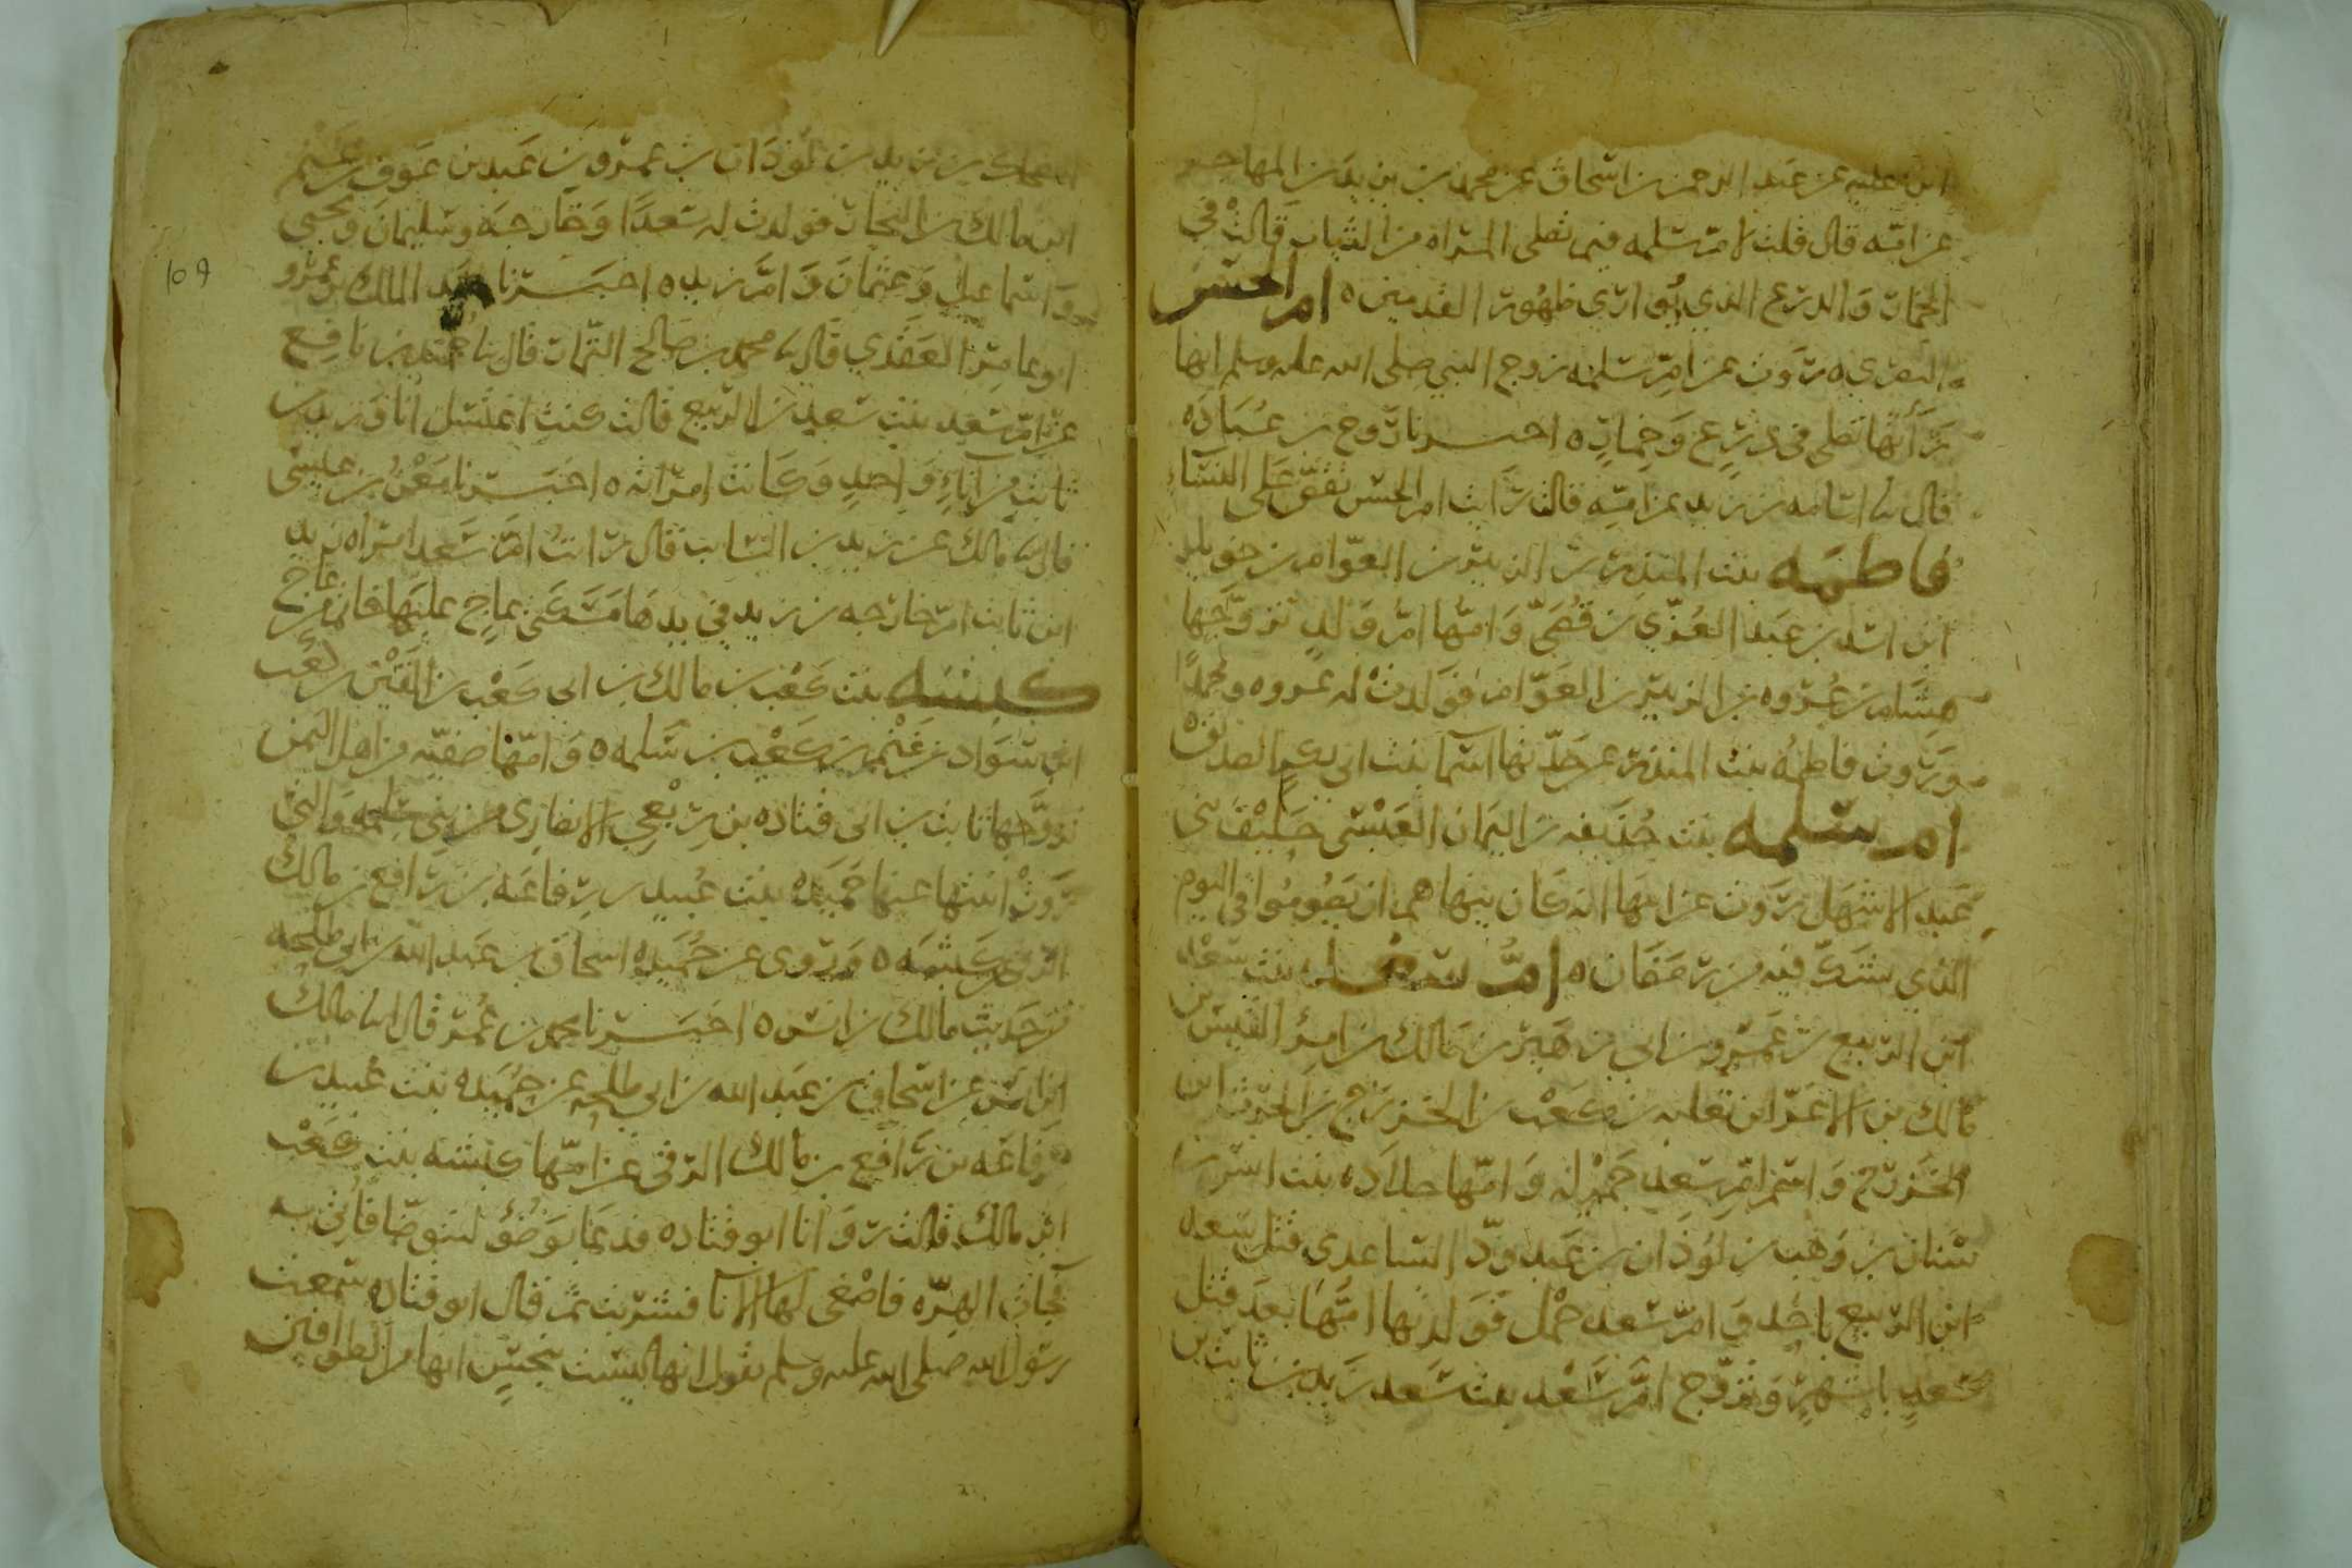 ابن علية عن عبد الرحمن بن اسحاق عن محمد بن زيد بن المهاجر
عن امه قال قلت لام سلمه فيم تصلى المراه من الثياب قالت في
الخمار والدرع الذي يوارى ظهور القدمين ه ام الحسن
البصرى ه روت عن ام سلمه زوج النبي صلى الله عليه وسلم انها
رأتها تصلى فى درع وخمار ه اخبرنا روح بن عباده
قال نا اسامه بن زيد عن امه قالت رايت ام الحسن تقص على النساء
فاطمه بنت المنذر بن الزبير بن العوام بن خويلد
ابن اسد بن عبد العزى بن قصى وامها ام ولد تزوجها
هشام بن عروه بن الزبير بن العوام فولدت له عروه ومحمدا
وروت فاطمه بنت المنذر عن جدتها اسما بنت ابى بكر الصديق
ام سلمه بنت حذيفه بن اليمان العبسى حليف بنى
عبد الاشهل روت عن ابيها انه كان ينهاهم ان يصوموا فى اليوم
الذي يشك فيه من رمضان ه ام سعد بنت سعد
ابن الربيع بن عمرو بن ابى زهير بن مالك بن امرئ القيس بن
مالك بن الاغر ابن ثعلبه بن كعب بن الخزرج بن الحرث ابن
الخزرج واسم ام سعد جميله وامها خلاده بنت انس بن
سنان بن وهب بن لوذان بن عبد ود الساعدى قتل سعد
ابن الربيع باحد وام سعد حمل فولدتها امها بعد قتل
سعد باشهر وتزوج ام سعد بنت سعد زيد بن ثابت بن
الضحاك بن زيد بن لوذان بن عمرو بن عبد بن عوف بن غنم
ابن مالك بن النجار فولدت له سعدا وخارجه وسليمان ويحيى
واسماعيل وعثمان وام زيد ه اخبرنا عبد الملك بن عمرو
ابو عامر العقدي قال نا محمد بن صالح التمار قال نا حميد بن نافع
عن ام سعد بنت سعد بن الربيع قالت كنت اغتسل انا وزيد بن
ثابت من اناء واحد وكانت امراته ه اخبرنا معن بن عيسى
قال نا مالك عن زيد بن السايب قال رايت ام سعد امراه زيد
ابن ثابت ام خارجه بن زيد فى يدها مسكتى عاج عليها خاتم من عاج
كبشه بنت كعب بن مالك بن ابى كعب بن القين بن كعب
ابن سواد بن غنم بن كعب بن سلمه ه وامها صفيه من اهل اليمن
تزوجها ثابت بن ابى قتاده بن ربعى الانصارى من بنى سلمه والتى
روت ابنتها عنها حميده بنت عبيد بن رفاعه بن رافع بن مالك
الزرقى عن كبشه ه وروى عن حميده اسحاق بن عبد الله بن ابى طلحه
من حديث مالك بن انس ه اخبرنا محمد بن عمر قال انا مالك
ابن انس عن اسحاق بن عبد الله بن ابى طلحه عن حميده بنت عبيد بن
رفاعه بن رافع بن مالك الزرقى عن امها كبشه بنت كعب
ابن مالك قالت روانا ابو قتاده فدعا بوضوء ليتوضا فاتى به
فجات الهره فاصغى لها الانا فشربت ثم قال ابو قتاده سمعت
رسول الله صلى الله عليه وسلم يقول انها ليست بنجس انها من الطوافين
109